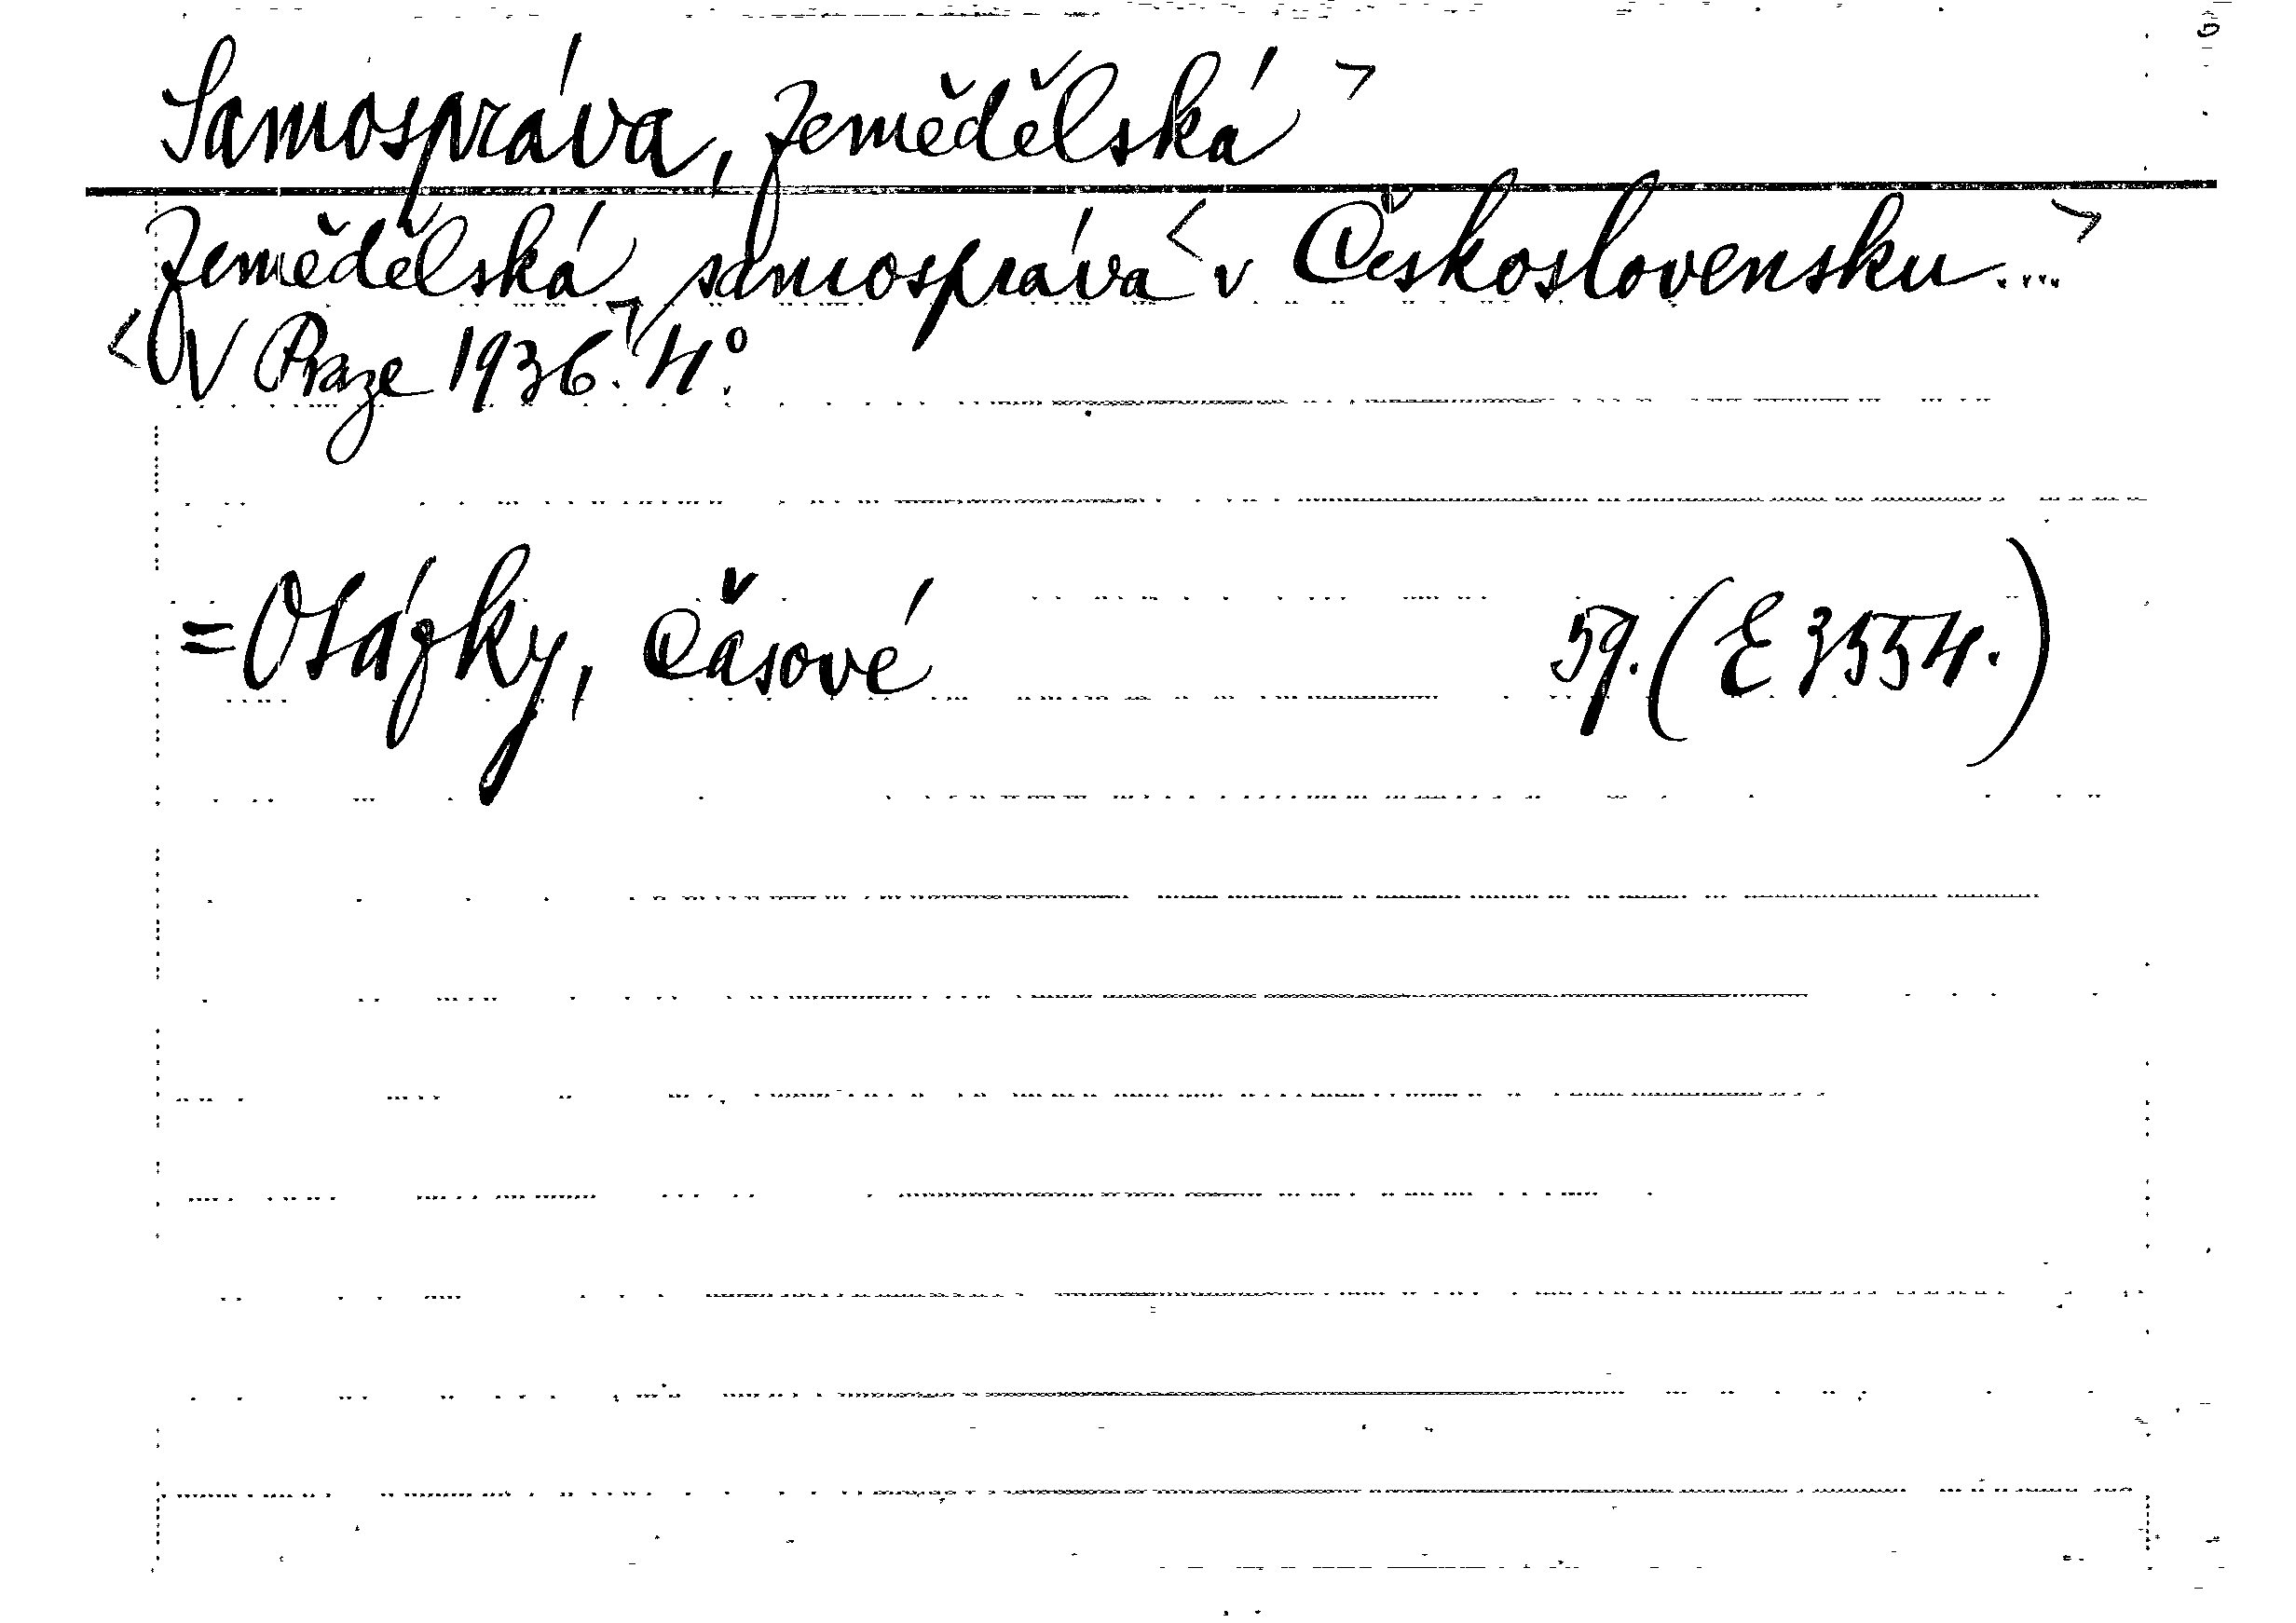 Samospráva, zemědělská >
Zemědělská samospráva < v Československu... >
< V Praze 1936. > 4°.
= Otázky, Časové 59. (E 3554.)